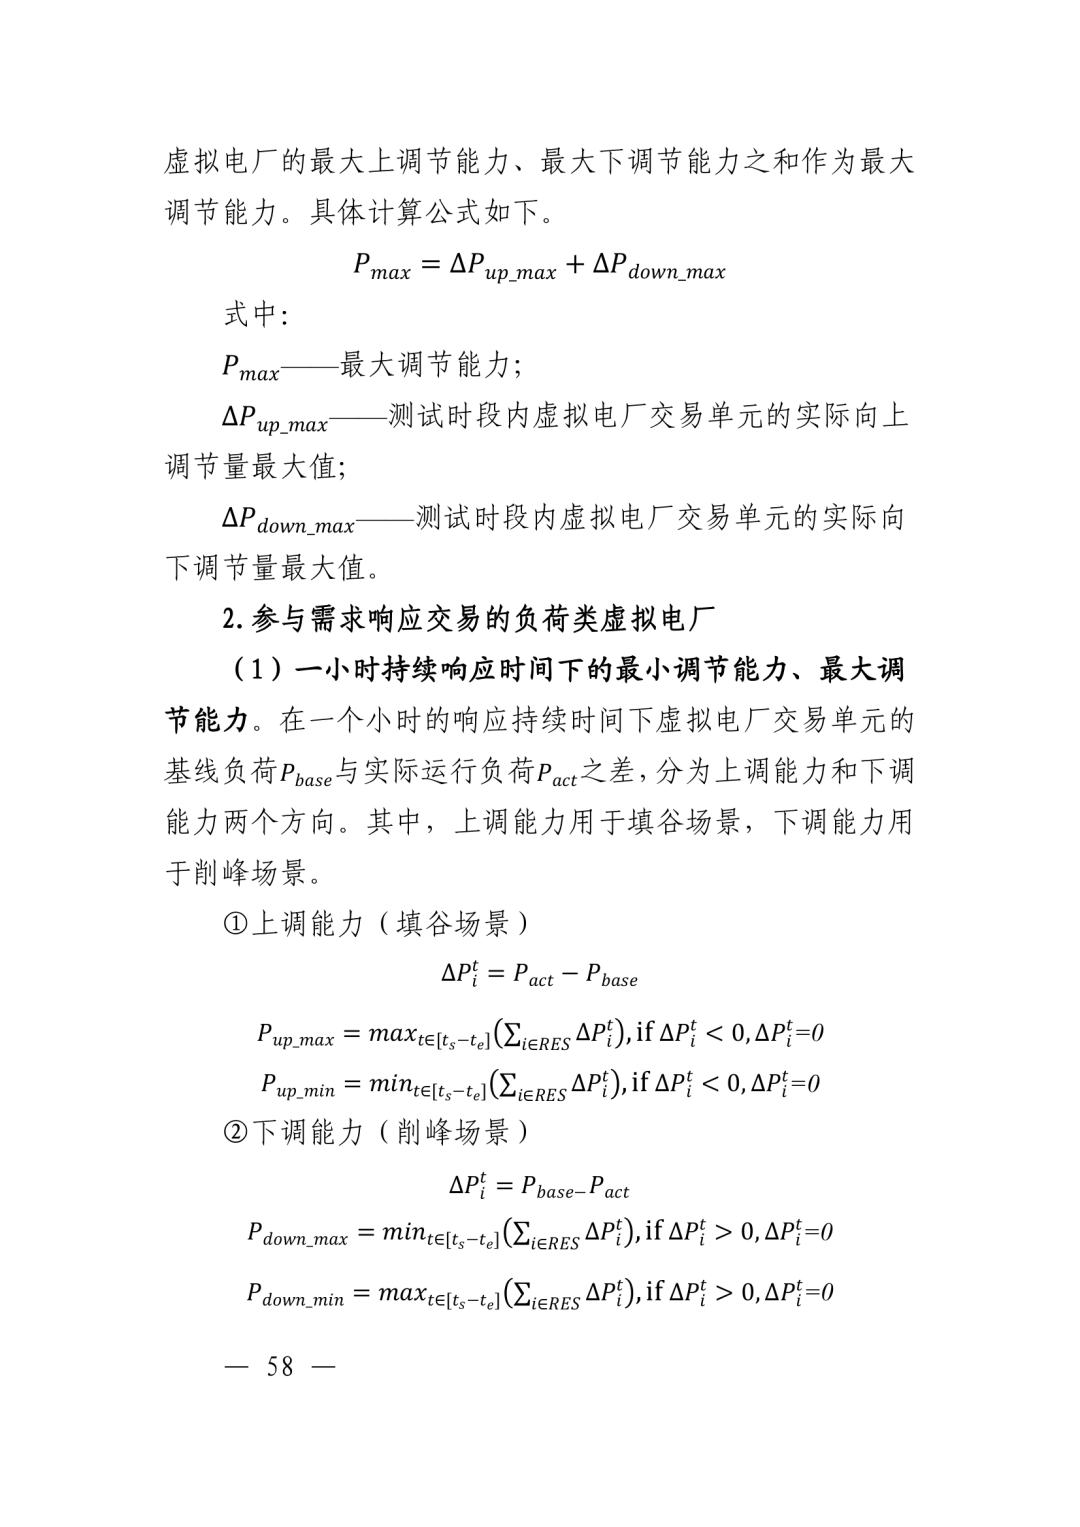 虚拟电厂的最大上调节能力、最大下调节能力之和作为最大
调节能力。具体计算公式如下。
P_{max} = ΔP_{up_max} + ΔP_{down_max}
式中:
P_{max}——最大调节能力;
ΔP_{up_max}——测试时段内虚拟电厂交易单元的实际向上
调节量最大值;
ΔP_{down_max}——测试时段内虚拟电厂交易单元的实际向
下调节量最大值。
2.参与需求响应交易的负荷类虚拟电厂
（1）一小时持续响应时间下的最小调节能力、最大调
节能力。在一个小时的响应持续时间下虚拟电厂交易单元的
基线负荷P_{base}与实际运行负荷P_{act}之差,分为上调能力和下调
能力两个方向。其中，上调能力用于填谷场景，下调能力用
于削峰场景。
①上调能力（填谷场景）
ΔP_i^t = P_{act} − P_{base}
P_{up_max} = max_{t∈[t_s−t_e]}(∑_{i∈RES} ΔP_i^t), if ΔP_i^t < 0, ΔP_i^t=0
P_{up_min} = min_{t∈[t_s−t_e]}(∑_{i∈RES} ΔP_i^t), if ΔP_i^t < 0, ΔP_i^t=0
②下调能力（削峰场景）
ΔP_i^t = P_{base−}P_{act}
P_{down_max} = min_{t∈[t_s−t_e]}(∑_{i∈RES} ΔP_i^t), if ΔP_i^t > 0, ΔP_i^t=0
P_{down_min} = max_{t∈[t_s−t_e]}(∑_{i∈RES} ΔP_i^t), if ΔP_i^t > 0, ΔP_i^t=0
— 58 —